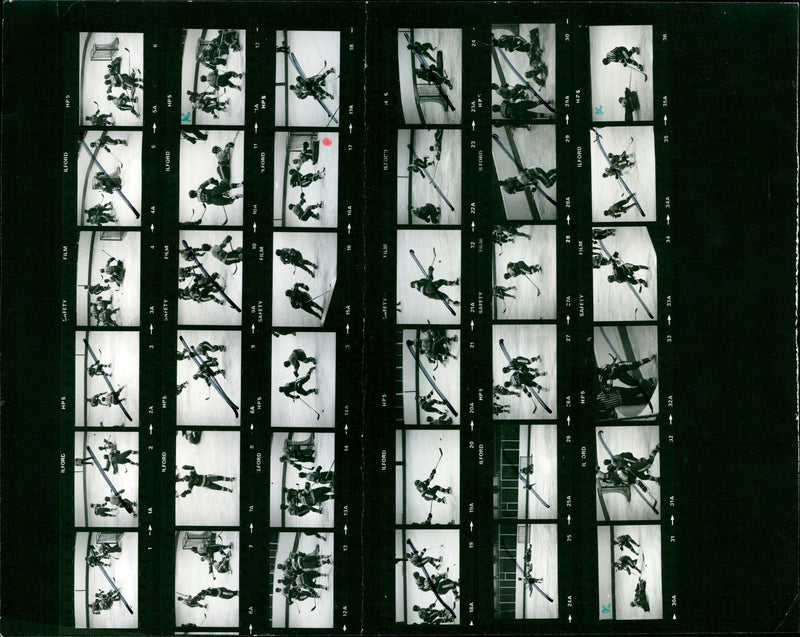 HP5 ILFORD SAFETY FILM HP5 ILFORD
6 5A 5 4A 4 3A 3 2A 2 1A 1
HP5 ILFORD FILM SAFETY HP5 ILFORD
12 11A 11 10A 10 9A 9 8A 8 7A 7 6A
18 17A 17 16A 16 15A 15 14A 14 13A 13 12A
24 23A 23 22A 22 21A 21 20A 20 19A 19 18A
HP5 ILFORD SAFETY FILM HP5 ILFORD
30 29A 29 28A 28 27A 27 26A 26 25A 25 24A
HP5 ILFORD SAFETY FILM HP5 ILFORD
36 35A 35 34A 34 33A 33 32A 32 31A 31 30A